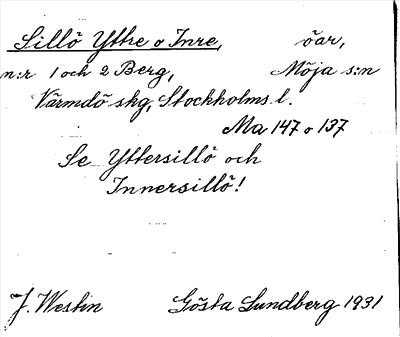 Sillö Yttre o Inre, öar,
n:r 1 och 2 Berg, Möja s:n
Värmdö skg, Stockholms l.
Ma 147 o 137
Se Yttersillö och
Innersillö!
J. Westin Gösta Lundberg 1931